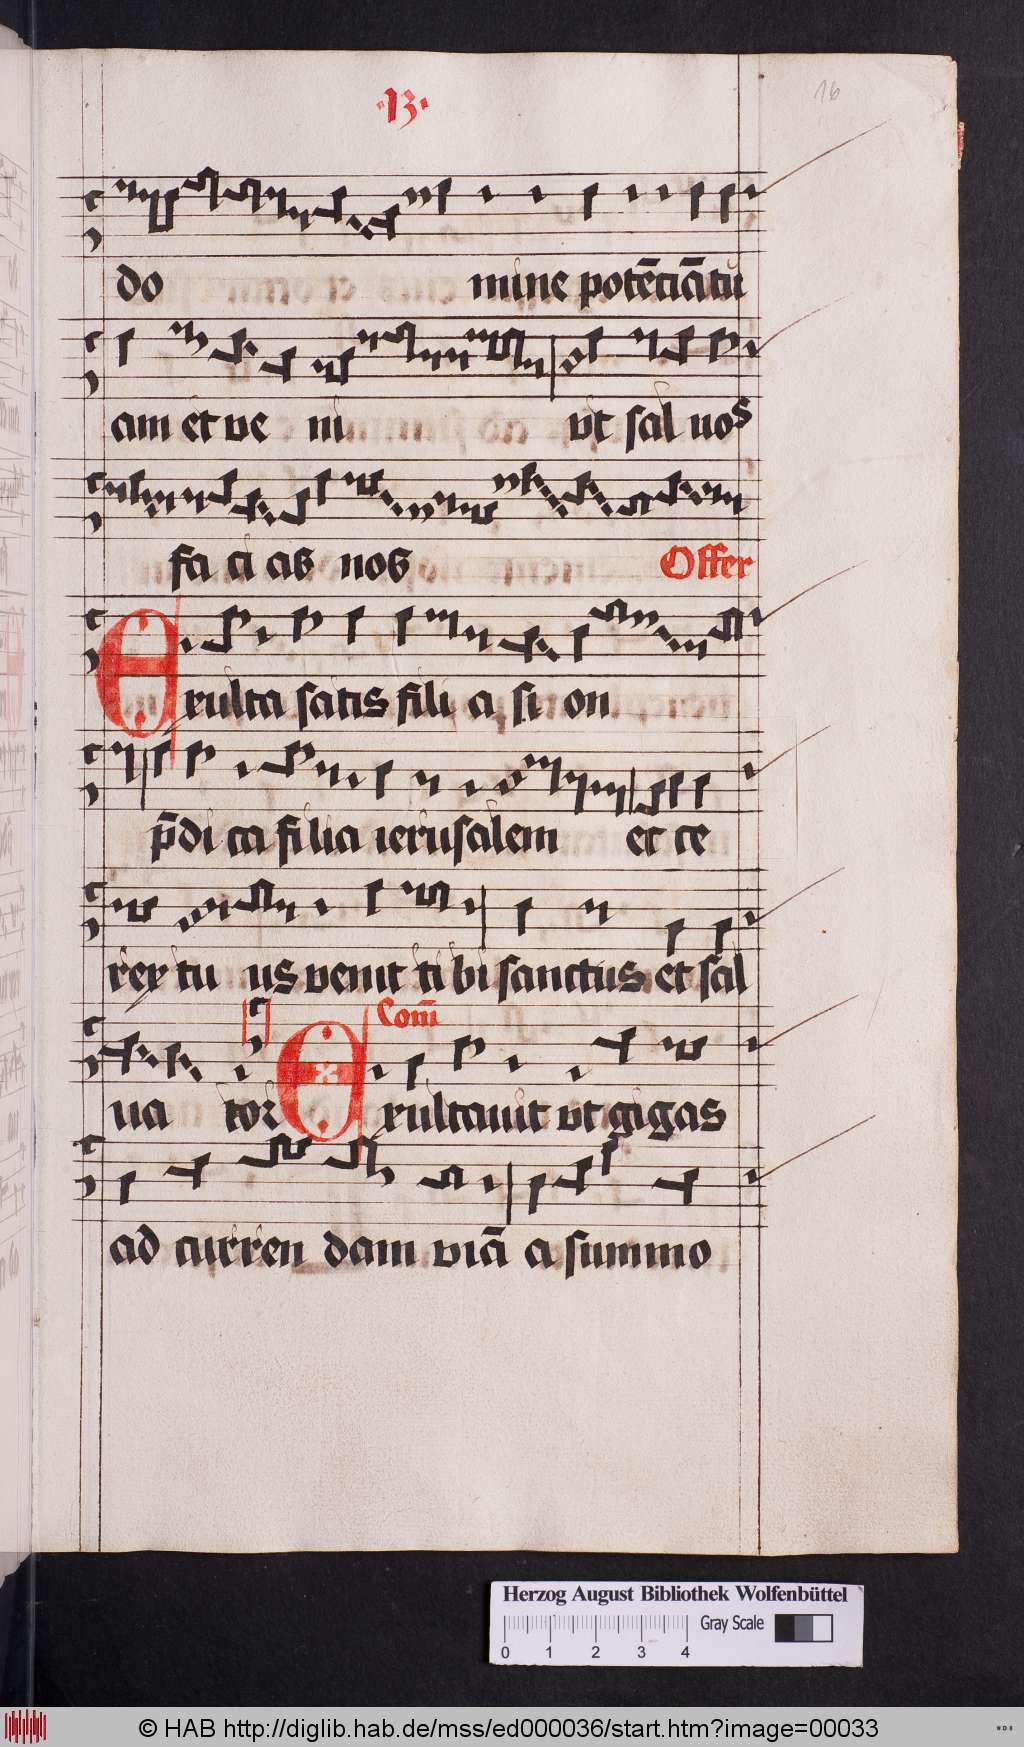 ·13·
16
do mine potēciā tu
am et ve ni vt sal nos
fa ci as nos Offer
Exulta satis fili a si on
p̄di ca filia ierusalem et ce
rex tu us venit ti bi sanctus et sal
ua tor Com̄ Exultauit vt gigas
ad curren dam viā a summo
Herzog August Bibliothek Wolfenbüttel
0 1 2 3 4 Gray Scale
© HAB http://diglib.hab.de/mss/ed000036/start.htm?image=00033